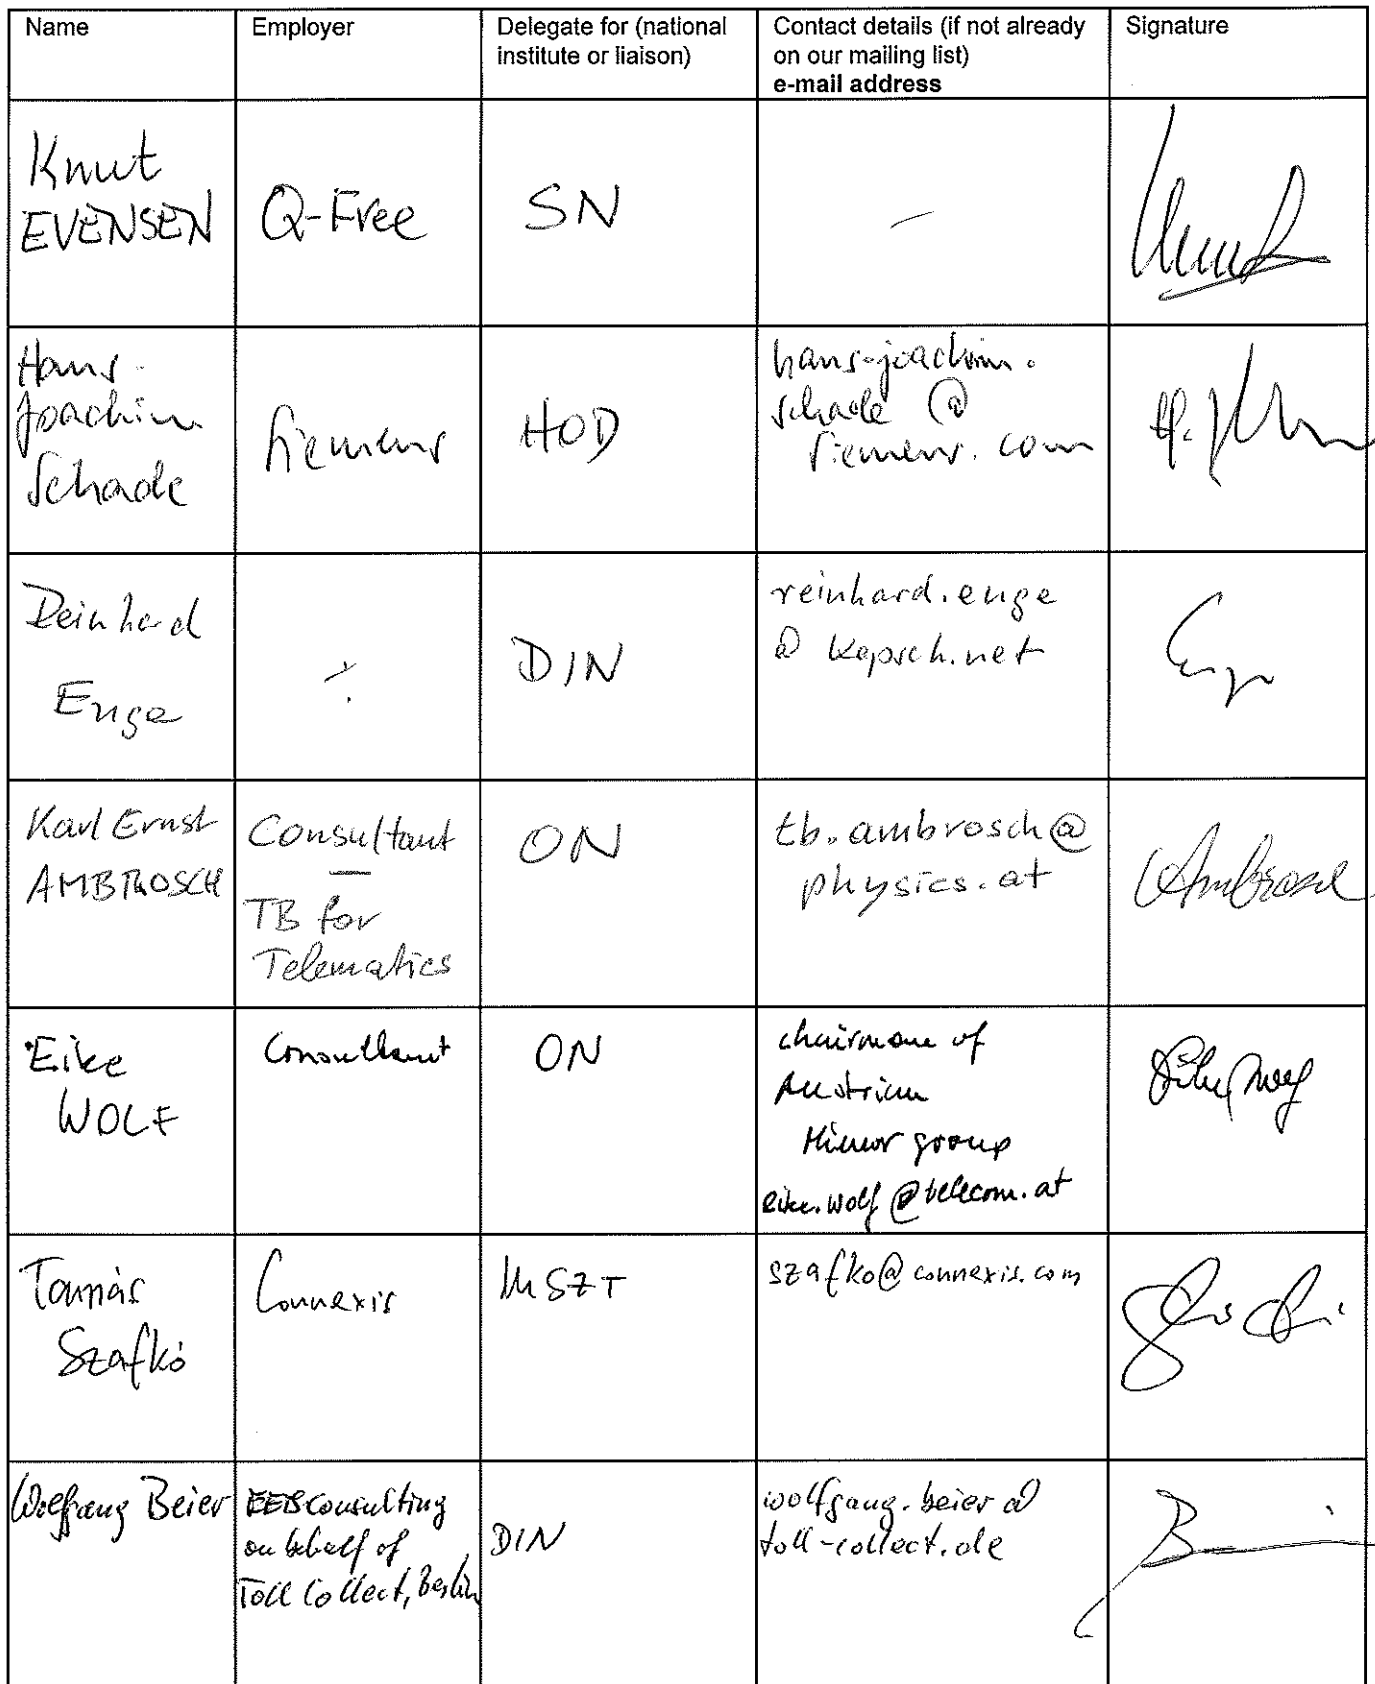 Name
Employer
Delegate for (national
institute or liaison)
Contact details (if not already
on our mailing list)
e-mail address
Signature
Knut
EVENSEN
Q-Free
SN
—
Hans-
Joachim
Schade
Siemens
HOD
hans-joachim.
schade @
siemens.com
Reinhard
Enge
DIN
reinhard.enge
@ kapsch.net
Karl Ernst
AMBROSCH
Consultant
—
TB for
Telematics
ON
tb.ambrosch@
physics.at
Ambrosch
Eike
WOLF
Consultant
ON
chairmane of
Austrian
Mirror group
eike.wolf@telecom.at
Tamás
Szafkó
Connexis
MSZT
szafko@connexis.com
Wolfgang Beier
consulting
on behalf of
Toll Collect, Berlin
DIN
wolfgang.beier@
toll-collect.de